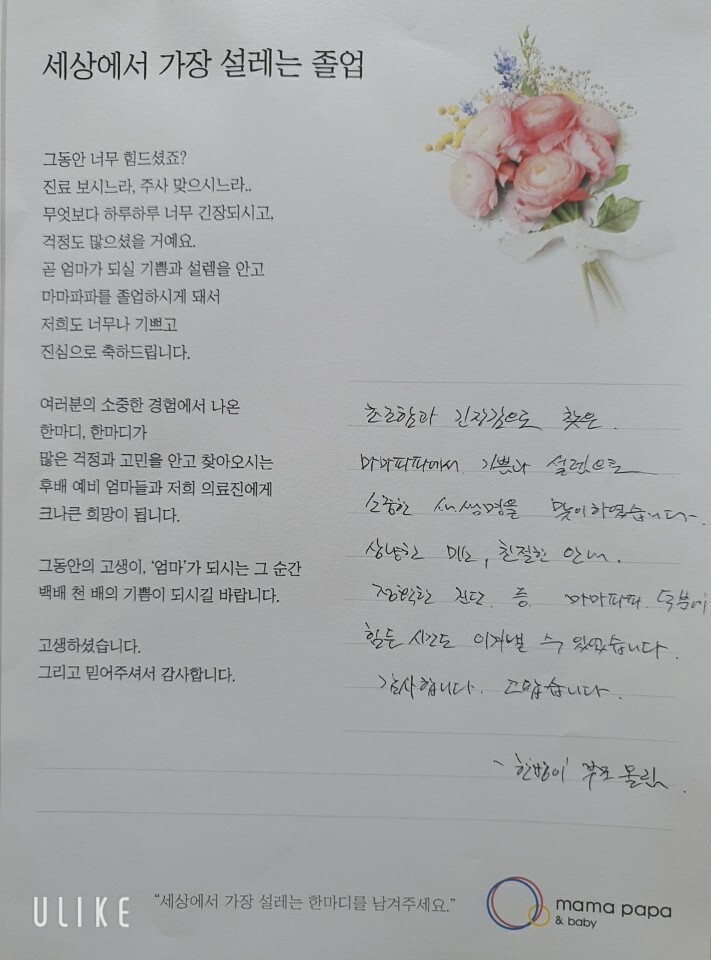 세상에서 가장 설레는 졸업
그동안 너무 힘드셨죠?
진료 보시느라, 주사 맞으시느라..
무엇보다 하루하루 너무 긴장되시고,
걱정도 많으셨을 거예요.
곧 엄마가 되실 기쁨과 설렘을 안고
마마파파를 졸업하시게 돼서
저희도 너무나 기쁘고
진심으로 축하드립니다.
여러분의 소중한 경험에서 나온
한마디, 한마디가
많은 걱정과 고민을 안고 찾아오시는
후배 예비 엄마들과 저희 의료진에게
크나큰 희망이 됩니다.
그동안의 고생이, ‘엄마’가 되시는 그 순간
백배 천 배의 기쁨이 되시길 바랍니다.
고생하셨습니다.
그리고 믿어주셔서 감사합니다.
초조함과 긴장감으로 찾은.
마마파파에서 기쁨과 설렘으로
소중한 새생명을 맞이하였습니다.
상냥한 미소, 친절한 안내.
정확한 진단 등 마마파파 덕분에
힘든 시간도 이겨낼 수 있었습니다.
감사합니다. 고맙습니다.
부모 올림.
“세상에서 가장 설레는 한마디를 남겨주세요.”
mama papa
& baby
ULIKE